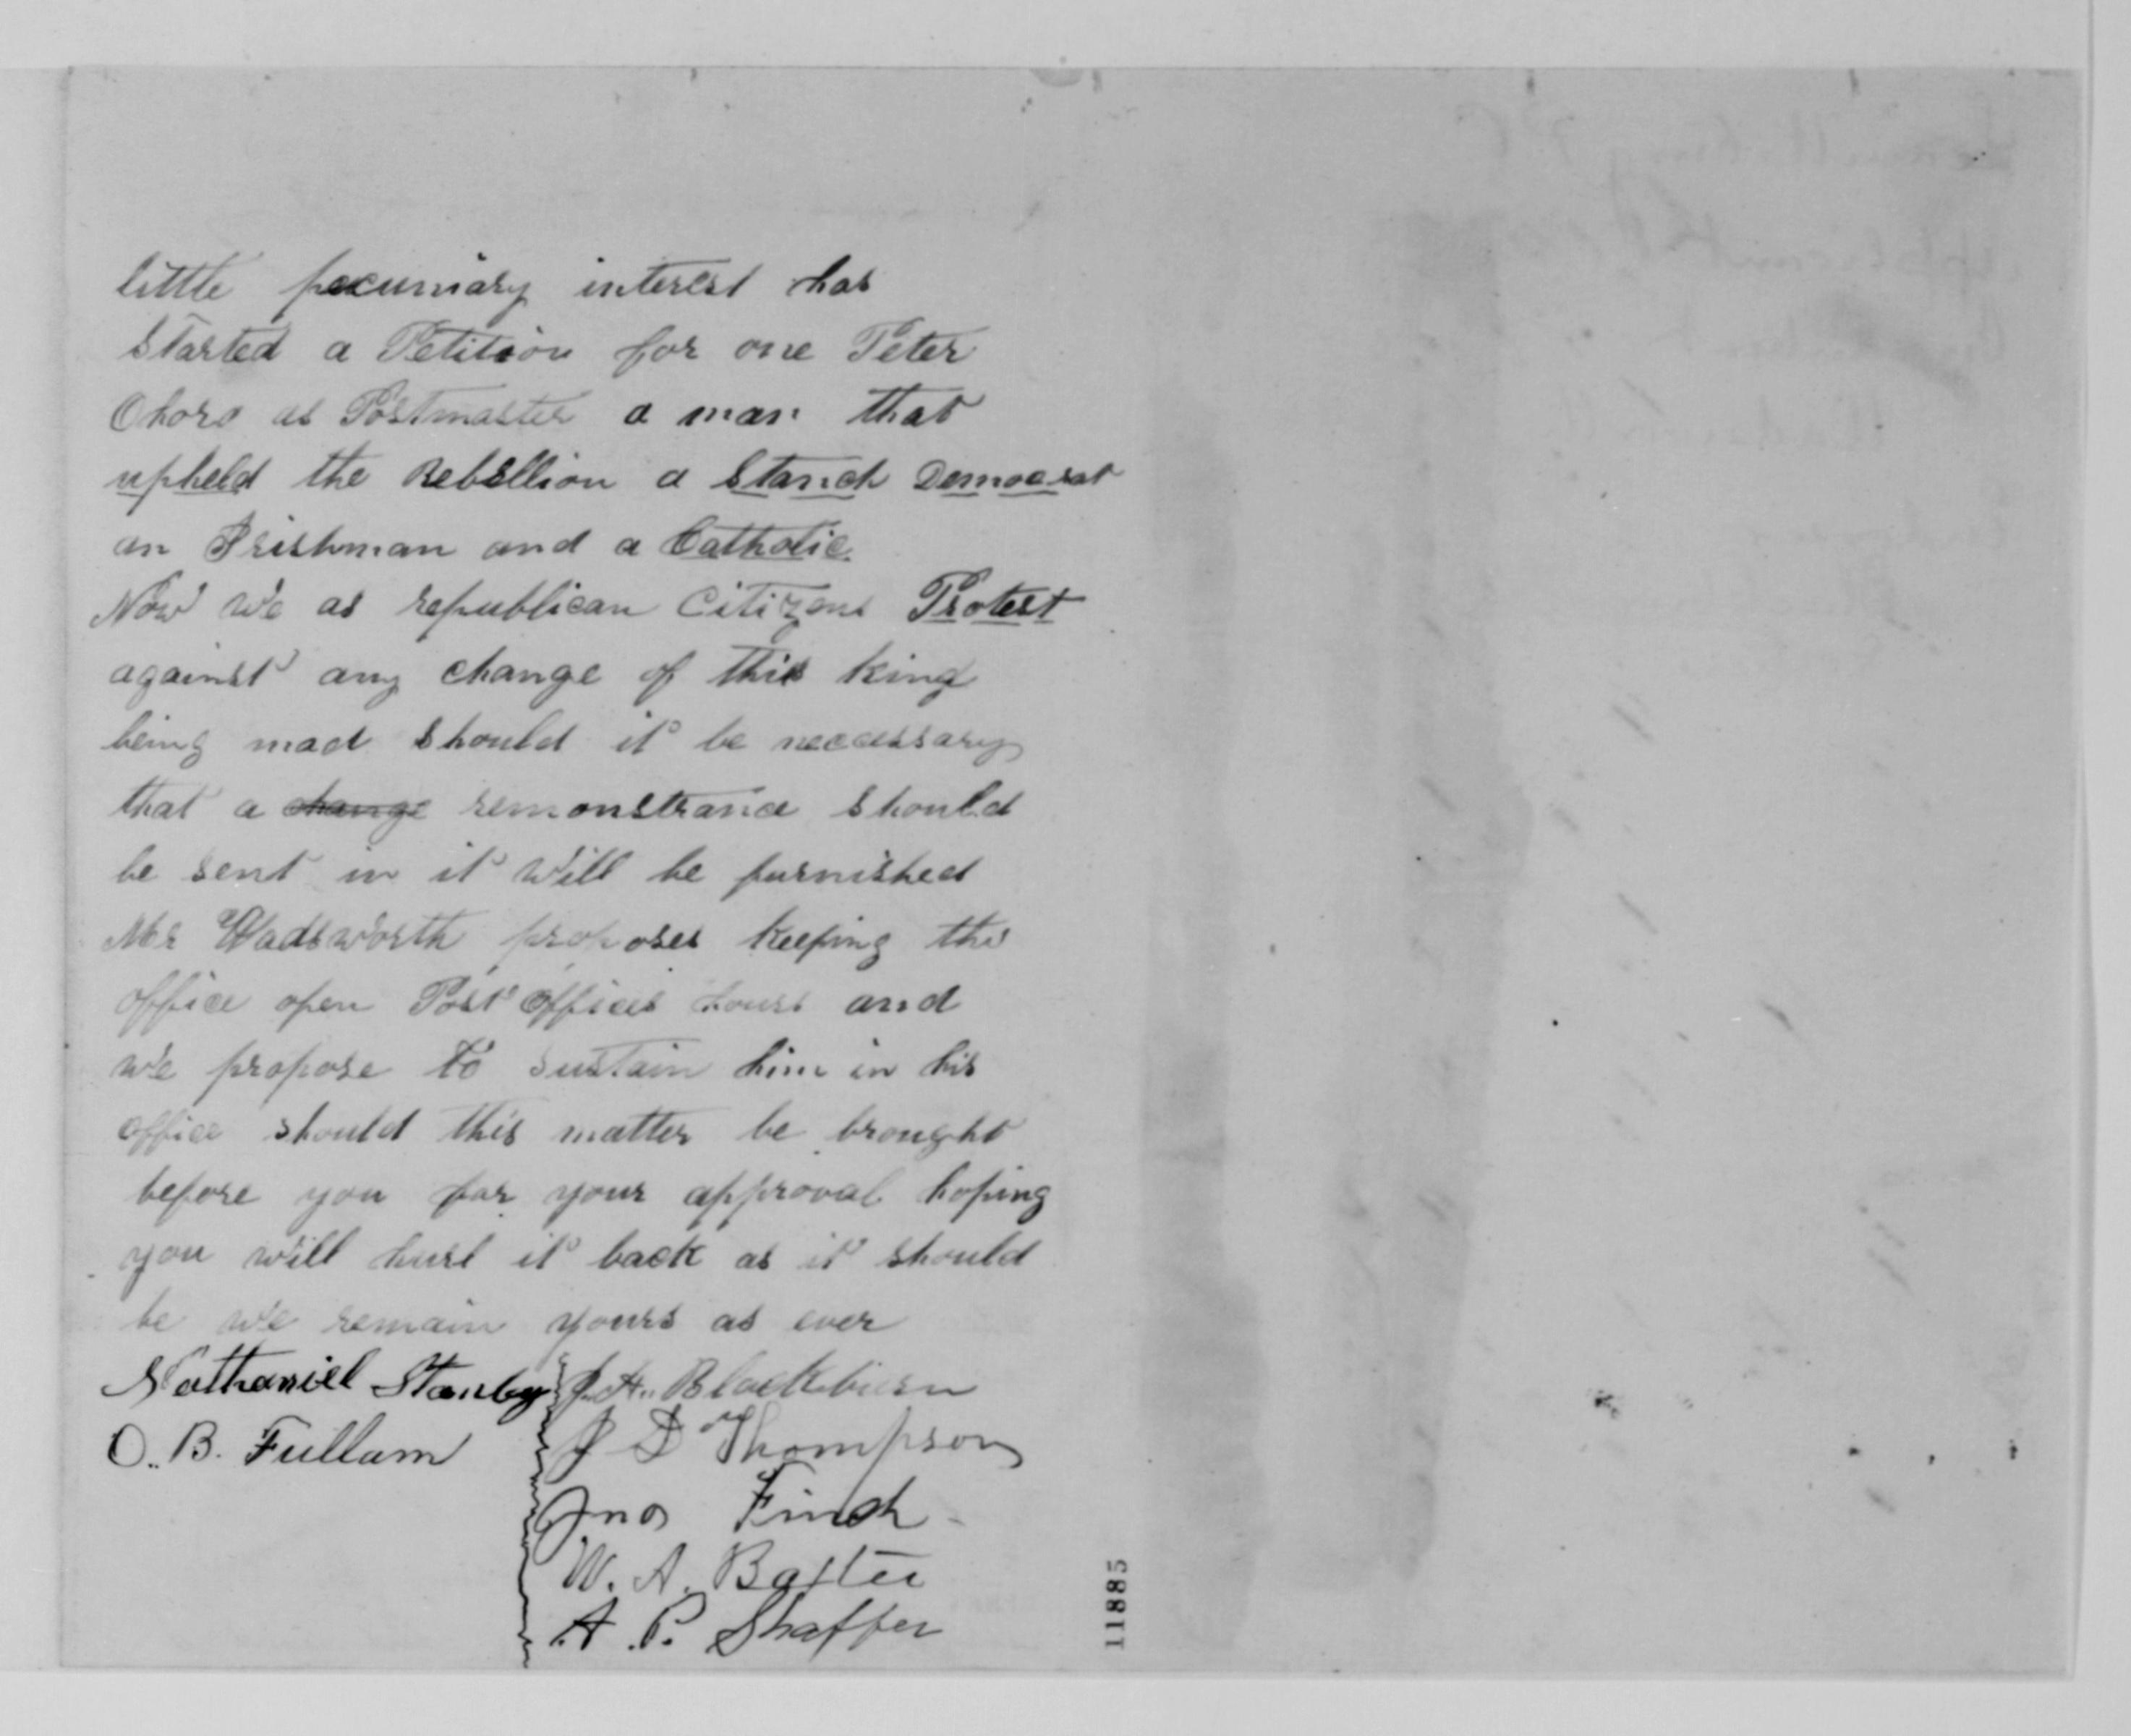 little pecuniary interest has
started a Petition for one Peter
Ohoro as Postmaster a man that
upheld the Rebellion a Stanch Democrat
an Irishman and a Catholic.
Now we as republican Citizens Protest
against any change of this king
being mad should it be neccessary
that a change remonstrance should
be sent in it will be furnished
Mr Wadsworth proposes keeping the
office open Post Offices hours and
we propose to sustain him in his
office should this matter be brought
before you for your approval hoping
you will hurl it back as it should
be we remain yours as ever
Nathaniel Stanby J. H. Blackburn
O. B. Fullam J D Thompson
Jno Finch
W. A. Baxter
A. P. Shaffer
11885